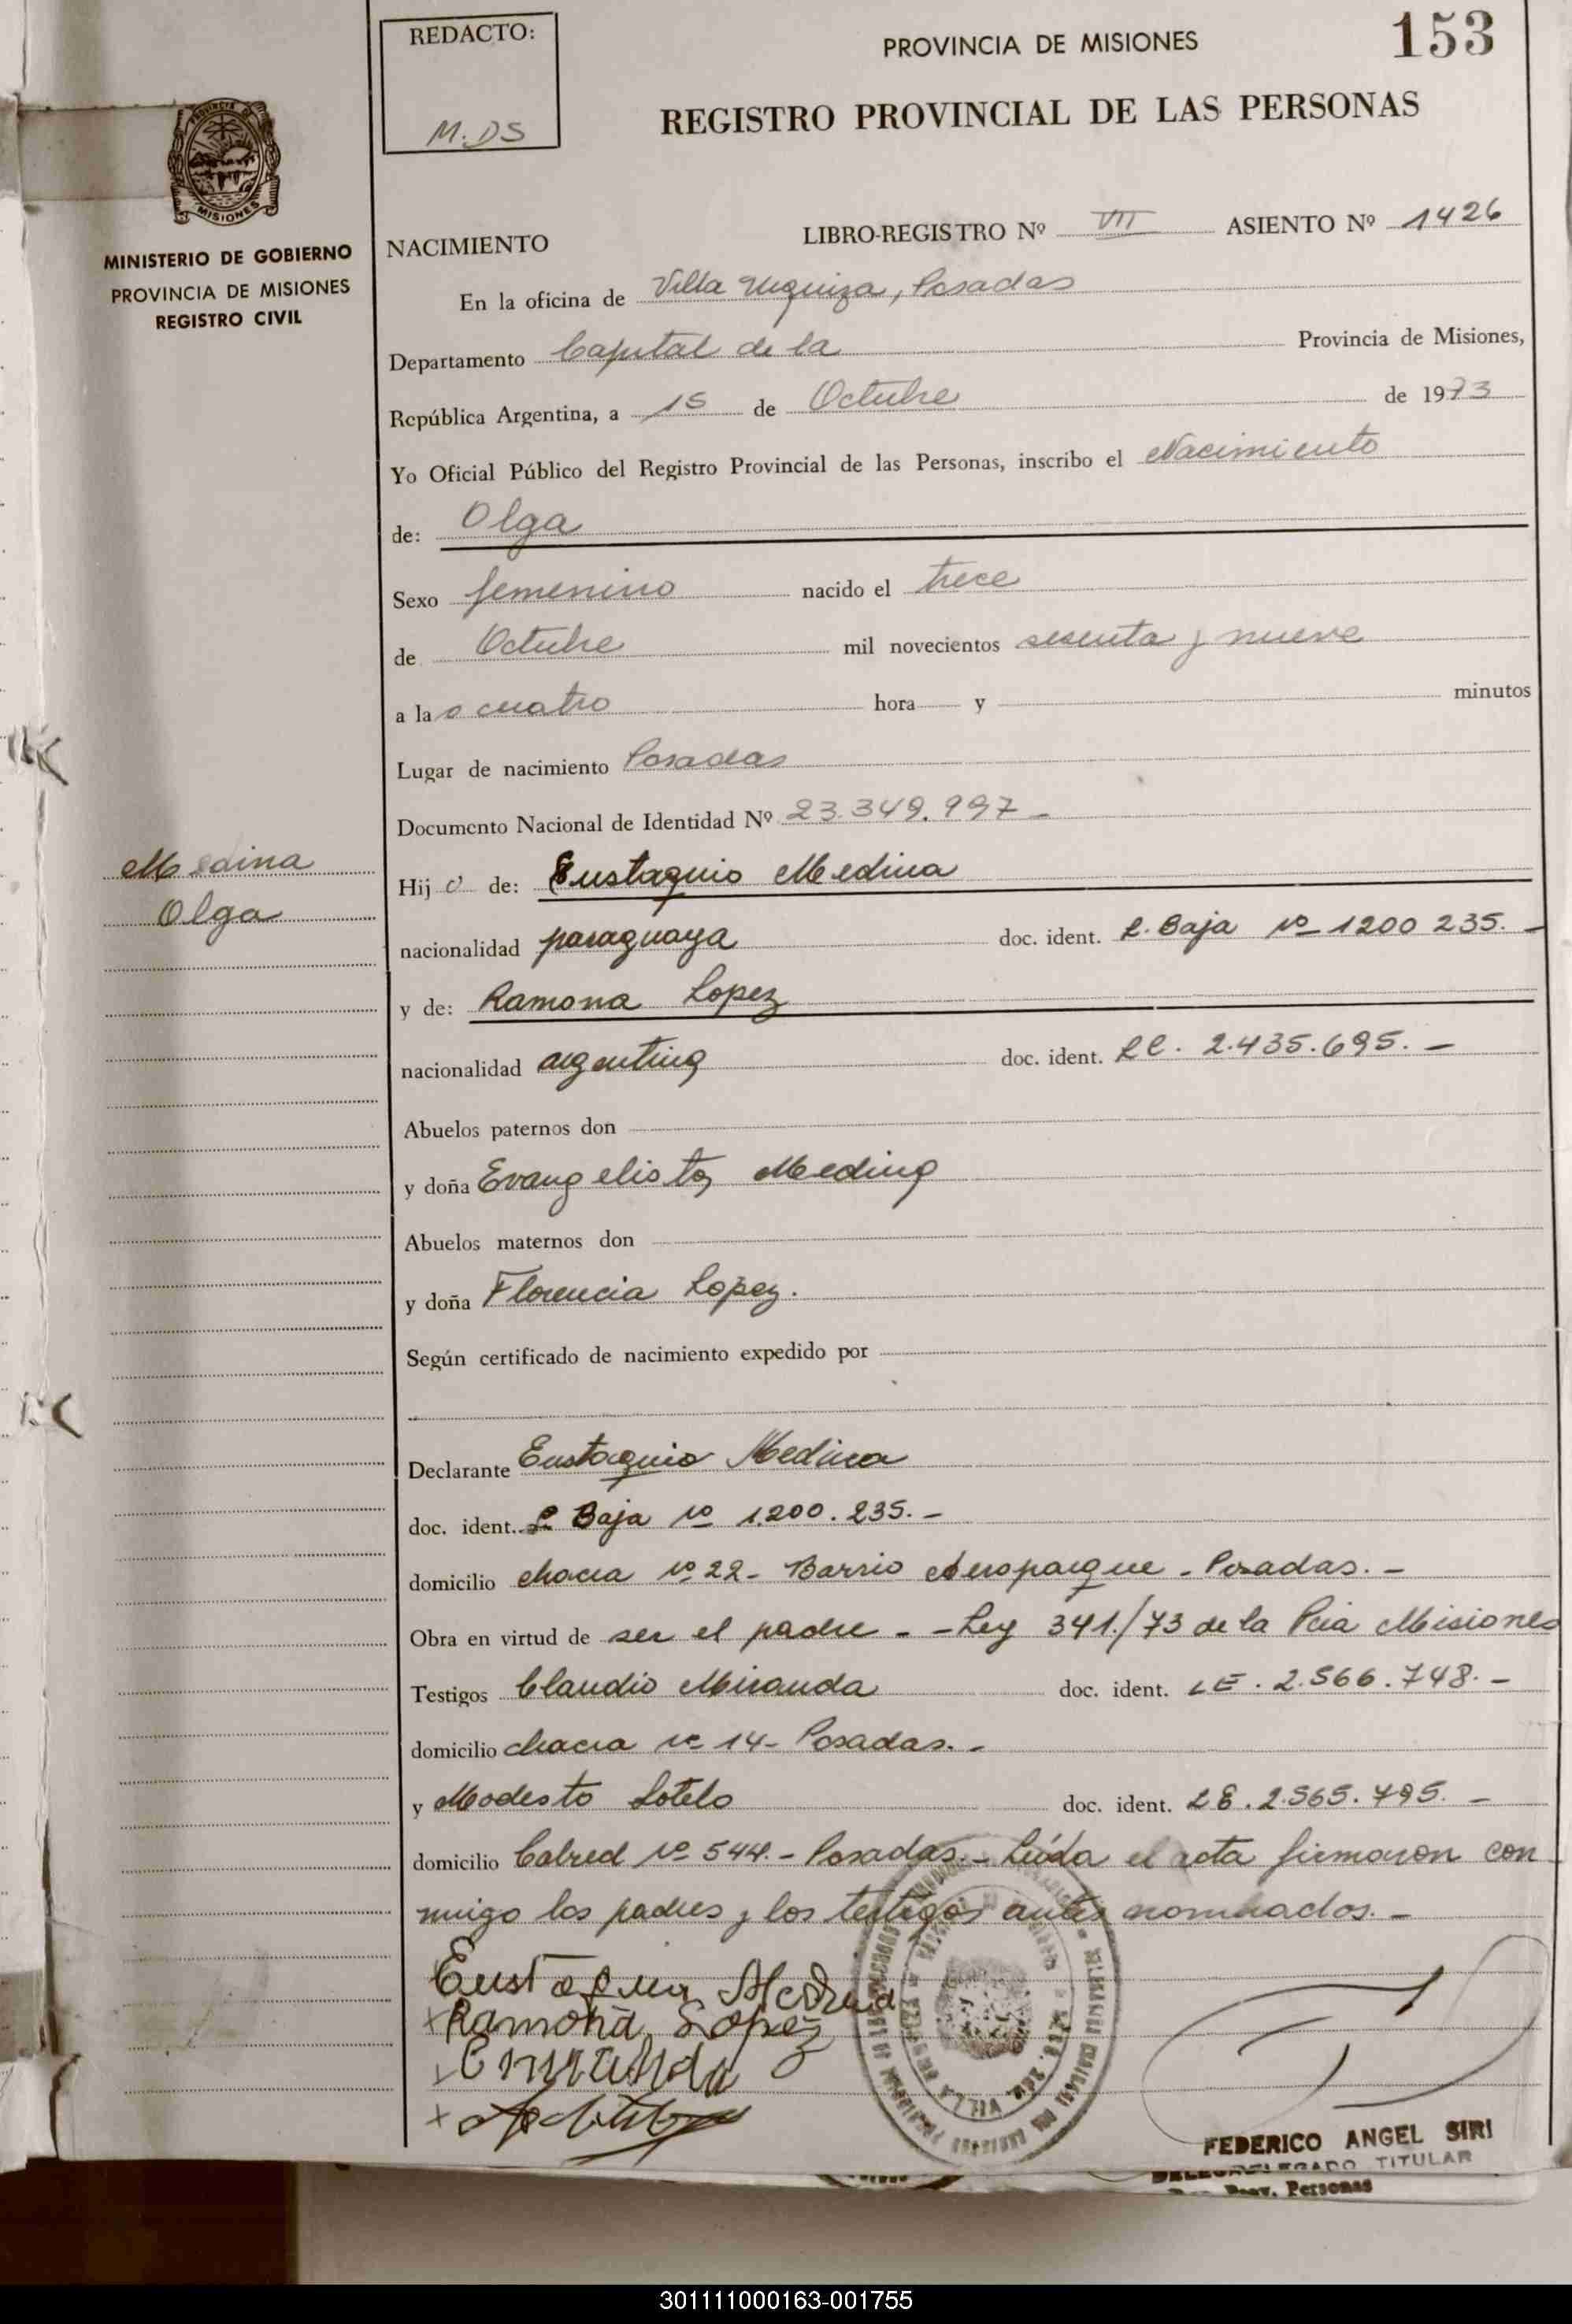 REDACTO:
M.DS
PROVINCIA DE MISIONES
153
REGISTRO PROVINCIAL DE LAS PERSONAS
MISIONES
MINISTERIO DE GOBIERNO
PROVINCIA DE MISIONES
REGISTRO CIVIL
NACIMIENTO LIBRO-REGISTRO Nº VII ASIENTO Nº 1426
En la oficina de Villa Urquiza, Posadas
Departamento Capital de la Provincia de Misiones,
República Argentina, a 15 de Octubre de 1973
Yo Oficial Público del Registro Provincial de las Personas, inscribo el Nacimiento
de: Olga
Sexo femenino nacido el trece
de Octubre mil novecientos sesenta y nueve
a las cuatro hora y minutos
Lugar de nacimiento Posadas
Documento Nacional de Identidad Nº 23.349.997-
Medina
Olga
Hijo de: Eustaquio Medina
nacionalidad paraguaya doc. ident. L. Baja Nº 1200 235.-
y de: Ramona Lopez
nacionalidad argentina doc. ident. LC. 2.435.695.-
Abuelos paternos don
y doña Evangelista Medina
Abuelos maternos don
y doña Florencia Lopez.
Según certificado de nacimiento expedido por
Declarante Eustaquio Medina
doc. ident. L Baja Nº 1.200.235.-
domicilio chacra Nº 22- Barrio Aeroparque - Posadas.-
Obra en virtud de ser el padre - - Ley 341./73 de la Pcia Misiones
Testigos Claudio Miranda doc. ident. LE. 2.566.748.-
domicilio chacra Nº 14- Posadas.-
y Modesto Sotelo doc. ident. LE. 2.565.795.-
domicilio Cabred Nº 544.- Posadas.- Leída el acta firmaron con
migo los padres y los testigos antes nombrados.-
Eustaquio Medina
x Ramona Lopez
x C Miranda
x
VILLA
FEDERICO ANGEL SIRI
DELEGADO TITULAR
Prov. Personas
301111000163-001755